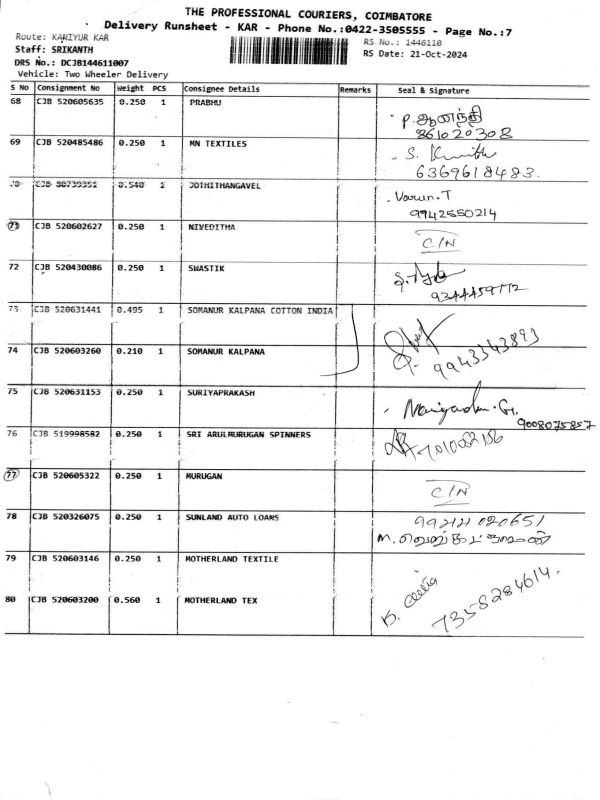 THE PROFESSIONAL COURIERS, COIMBATORE
Delivery Runsheet - KAR - Phone No.:0422-3505555 - Page No.:7
Route: KANIYUR KAR
RS No.: 1446110
Staff: SRIKANTH
RS Date: 21-Oct-2024
DRS No.: DCJB144611007
Vehicle: Two Wheeler Delivery
S No Consignment No Weight PCS Consignee Details Remarks Seal & Signature
68 CJB 520605635 0.250 1 PRABHU
P. ஆனந்தி
8610220308
69 CJB 520485486 0.250 1 MN TEXTILES
S.
6369618483.
CJB 80739351 0.540 JOTHITHANGAVEL
Varun.T
9942550214
71 CJB 520602627 0.250 1 NIVEDITHA
C/N
72 CJB 520430086 0.250 1 SWASTIK
9344459772
73 CJB 520631441 0.495 1 SOMANUR KALPANA COTTON INDIA
74 CJB 520603260 0.210 1 SOMANUR KALPANA
9943343893
75 CJB 520631153 0.250 1 SURIYAPRAKASH
9008075857
76 CJB 519998582 0.250 1 SRI ARULMURUGAN SPINNERS
77 CJB 520605322 0.250 1 MURUGAN
C/N
78 CJB 520326075 0.250 1 SUNLAND AUTO LOANS
M.
79 CJB 520603146 0.250 1 MOTHERLAND TEXTILE
80 CJB 520603200 0.560 1 MOTHERLAND TEX
7358284614.